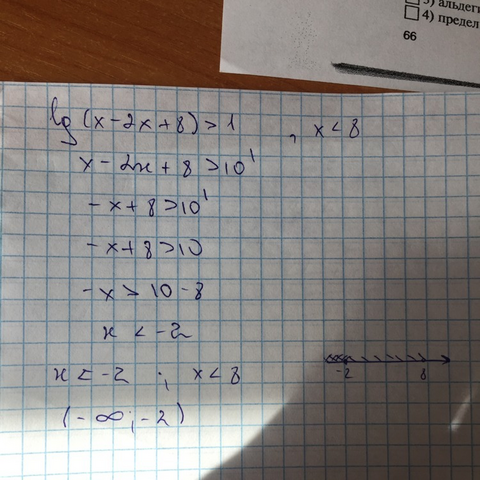 3) альдеги
4) предел
66
lg (x - 2x + 8) > 1 , x < 8
x - 2x + 8 > 10¹
-x + 8 > 10¹
-x + 8 > 10
-x > 10 - 8
x < -2
x < -2 ; x < 8
-2 8
(-∞; -2)